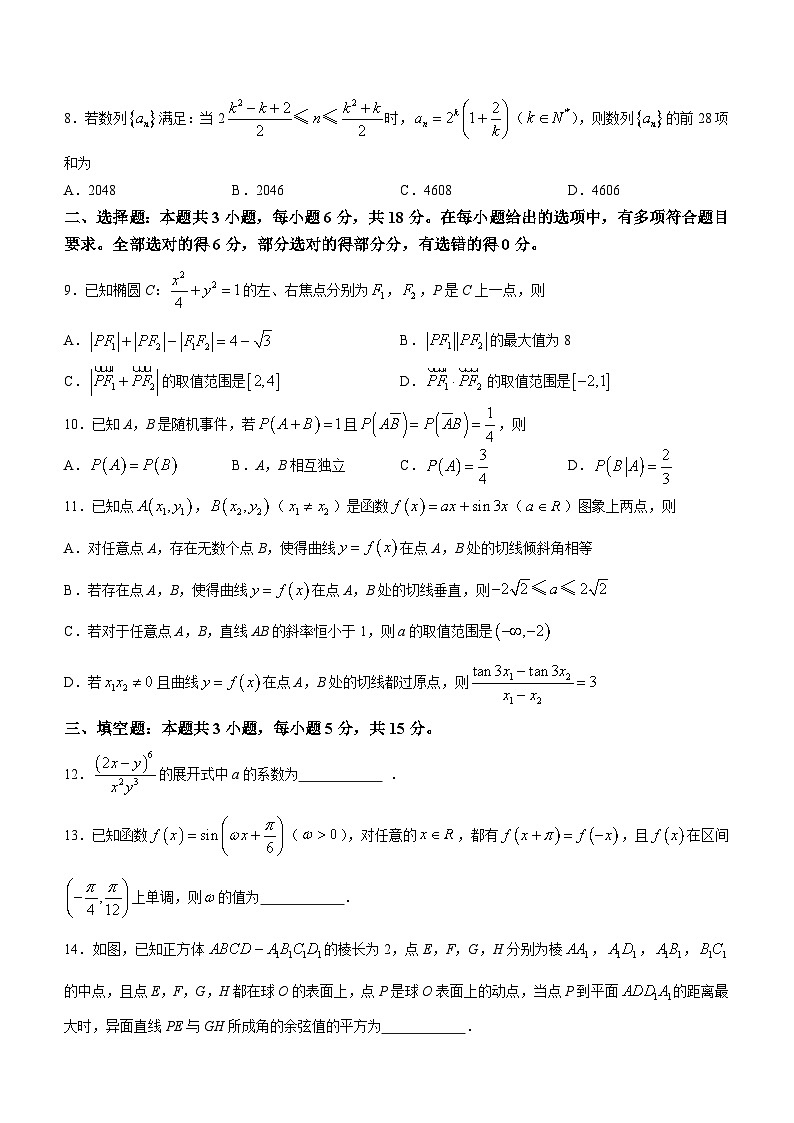 8．若数列{aₙ}满足：当 2 (k²−k+2)/2 ≤ n ≤ (k²+k)/2 时，aₙ = 2ᵏ(1+2/k)（k∈N*），则数列{aₙ}的前 28 项
和为
A．2048 B．2046 C．4608 D．4606
二、选择题：本题共 3 小题，每小题 6 分，共 18 分。在每小题给出的选项中，有多项符合题目
要求。全部选对的得 6 分，部分选对的得部分分，有选错的得 0 分。
9．已知椭圆 C：x²/4 + y² = 1 的左、右焦点分别为 F₁，F₂，P 是 C 上一点，则
A．|PF₁|+|PF₂|−|F₁F₂| = 4−√3 B．|PF₁||PF₂| 的最大值为 8
C．|PF₁→+PF₂→| 的取值范围是[2,4] D．PF₁→·PF₂→ 的取值范围是[−2,1]
10．已知 A，B 是随机事件，若 P(A+B)=1 且 P(AB̅)=P(A̅B)=1/4，则
A．P(A)=P(B) B．A，B 相互独立 C．P(A)=3/4 D．P(B|A)=2/3
11．已知点 A(x₁,y₁)，B(x₂,y₂)（x₁≠x₂）是函数 f(x)=ax+sin3x（a∈R）图象上两点，则
A．对任意点 A，存在无数个点 B，使得曲线 y=f(x) 在点 A，B 处的切线倾斜角相等
B．若存在点 A，B，使得曲线 y=f(x) 在点 A，B 处的切线垂直，则 −2√2 ≤ a ≤ 2√2
C．若对于任意点 A，B，直线 AB 的斜率恒小于 1，则 a 的取值范围是(−∞,−2)
D．若 x₁x₂≠0 且曲线 y=f(x) 在点 A，B 处的切线都过原点，则 (tan3x₁−tan3x₂)/(x₁−x₂)=3
三、填空题：本题共 3 小题，每小题 5 分，共 15 分。
12．(2x−y)⁶/(x²y³) 的展开式中 a 的系数为____________ ．
13．已知函数 f(x)=sin(ωx+π/6)（ω>0），对任意的 x∈R，都有 f(x+π)=f(−x)，且 f(x) 在区间
(−π/4,π/12) 上单调，则 ω 的值为____________．
14．如图，已知正方体 ABCD−A₁B₁C₁D₁ 的棱长为 2，点 E，F，G，H 分别为棱 AA₁，A₁D₁，A₁B₁，B₁C₁
的中点，且点 E，F，G，H 都在球 O 的表面上，点 P 是球 O 表面上的动点，当点 P 到平面 ADD₁A₁ 的距离最
大时，异面直线 PE 与 GH 所成角的余弦值的平方为____________．